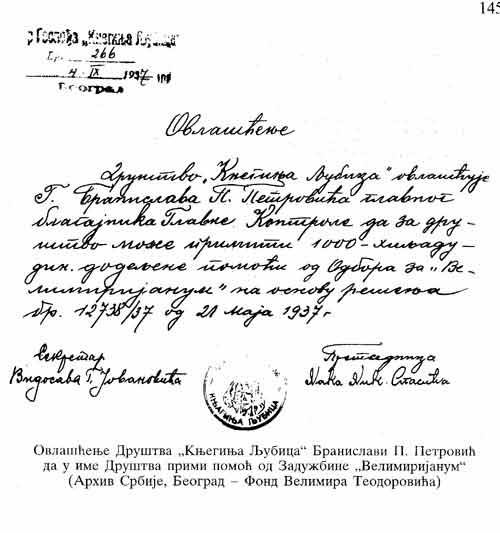 145
р Госпођа „Књегиња Љубица"
Бр. 266
4 IX 1937 год
БЕОГРАД
Овлашћење
Друштво „Кнегиња Љубица" овлашћује
Г. Бранислава П. Петровића главног
благајника Главне Контроле да за дру-
штво може примити 1000-хиљаду-
дин. додељене помоћи од Одбора за „Ве-
лимиријанум" на основу решења
бр. 12738/37 од 21 маја 1937 г
Секретар
Видосава Г. Јовановића
Претседница
Ника Ник. Спасића
КЊАГИЊА ЉУБИЦА
Овлашћење Друштва „Књегиња Љубица“ Бранислави П. Петровић
да у име Друштва прими помоћ од Задужбине „Велимиријанум“
(Архив Србије, Београд – Фонд Велимира Теодоровића)